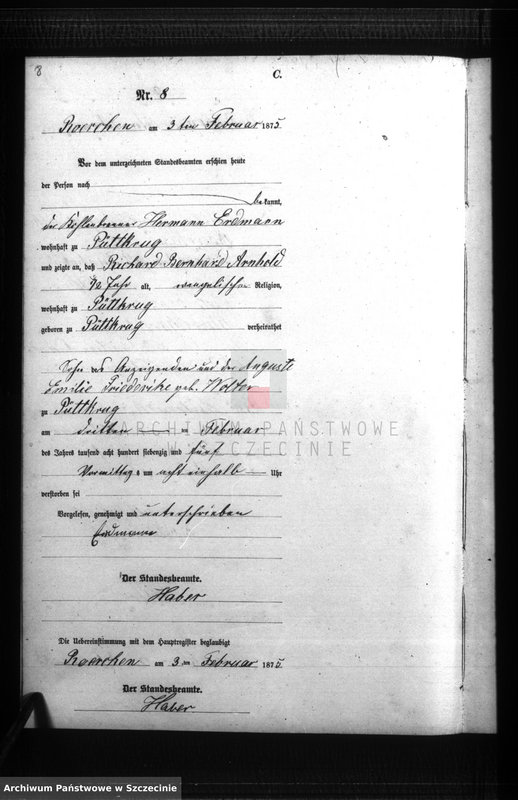 8
C.
Nr. 8
Roerchen am 3 ten Februar 1875
Vor dem unterzeichneten Standesbeamten erschien heute
der Person nach
bekannt,
der Kohlenbrenner Hermann Erdmann
wohnhaft zu Püttkrug
und zeigte an, daß Richard Bernhard Arnhold
1/2 Jahr alt, evangelischer Religion,
wohnhaft zu Püttkrug
geboren zu Püttkrug verheirathet
Sohn des Anzeigenden und der Auguste
Emilie Friederike geb. Wolter
zu Püttkrug
am dritten Februar
des Jahres tausend acht hundert siebenzig und fünf
Vormittags um acht einhalb Uhr
verstorben sei
Vorgelesen, genehmigt und unterschrieben
Erdmann
Der Standesbeamte.
Haber
Die Uebereinstimmung mit dem Hauptregister beglaubigt
Roerchen am 3 ten Februar 1875.
Der Standesbeamte.
Haber
ARCHIWUM PAŃSTWOWE
W SZCZECINIE
Archiwum Państwowe w Szczecinie